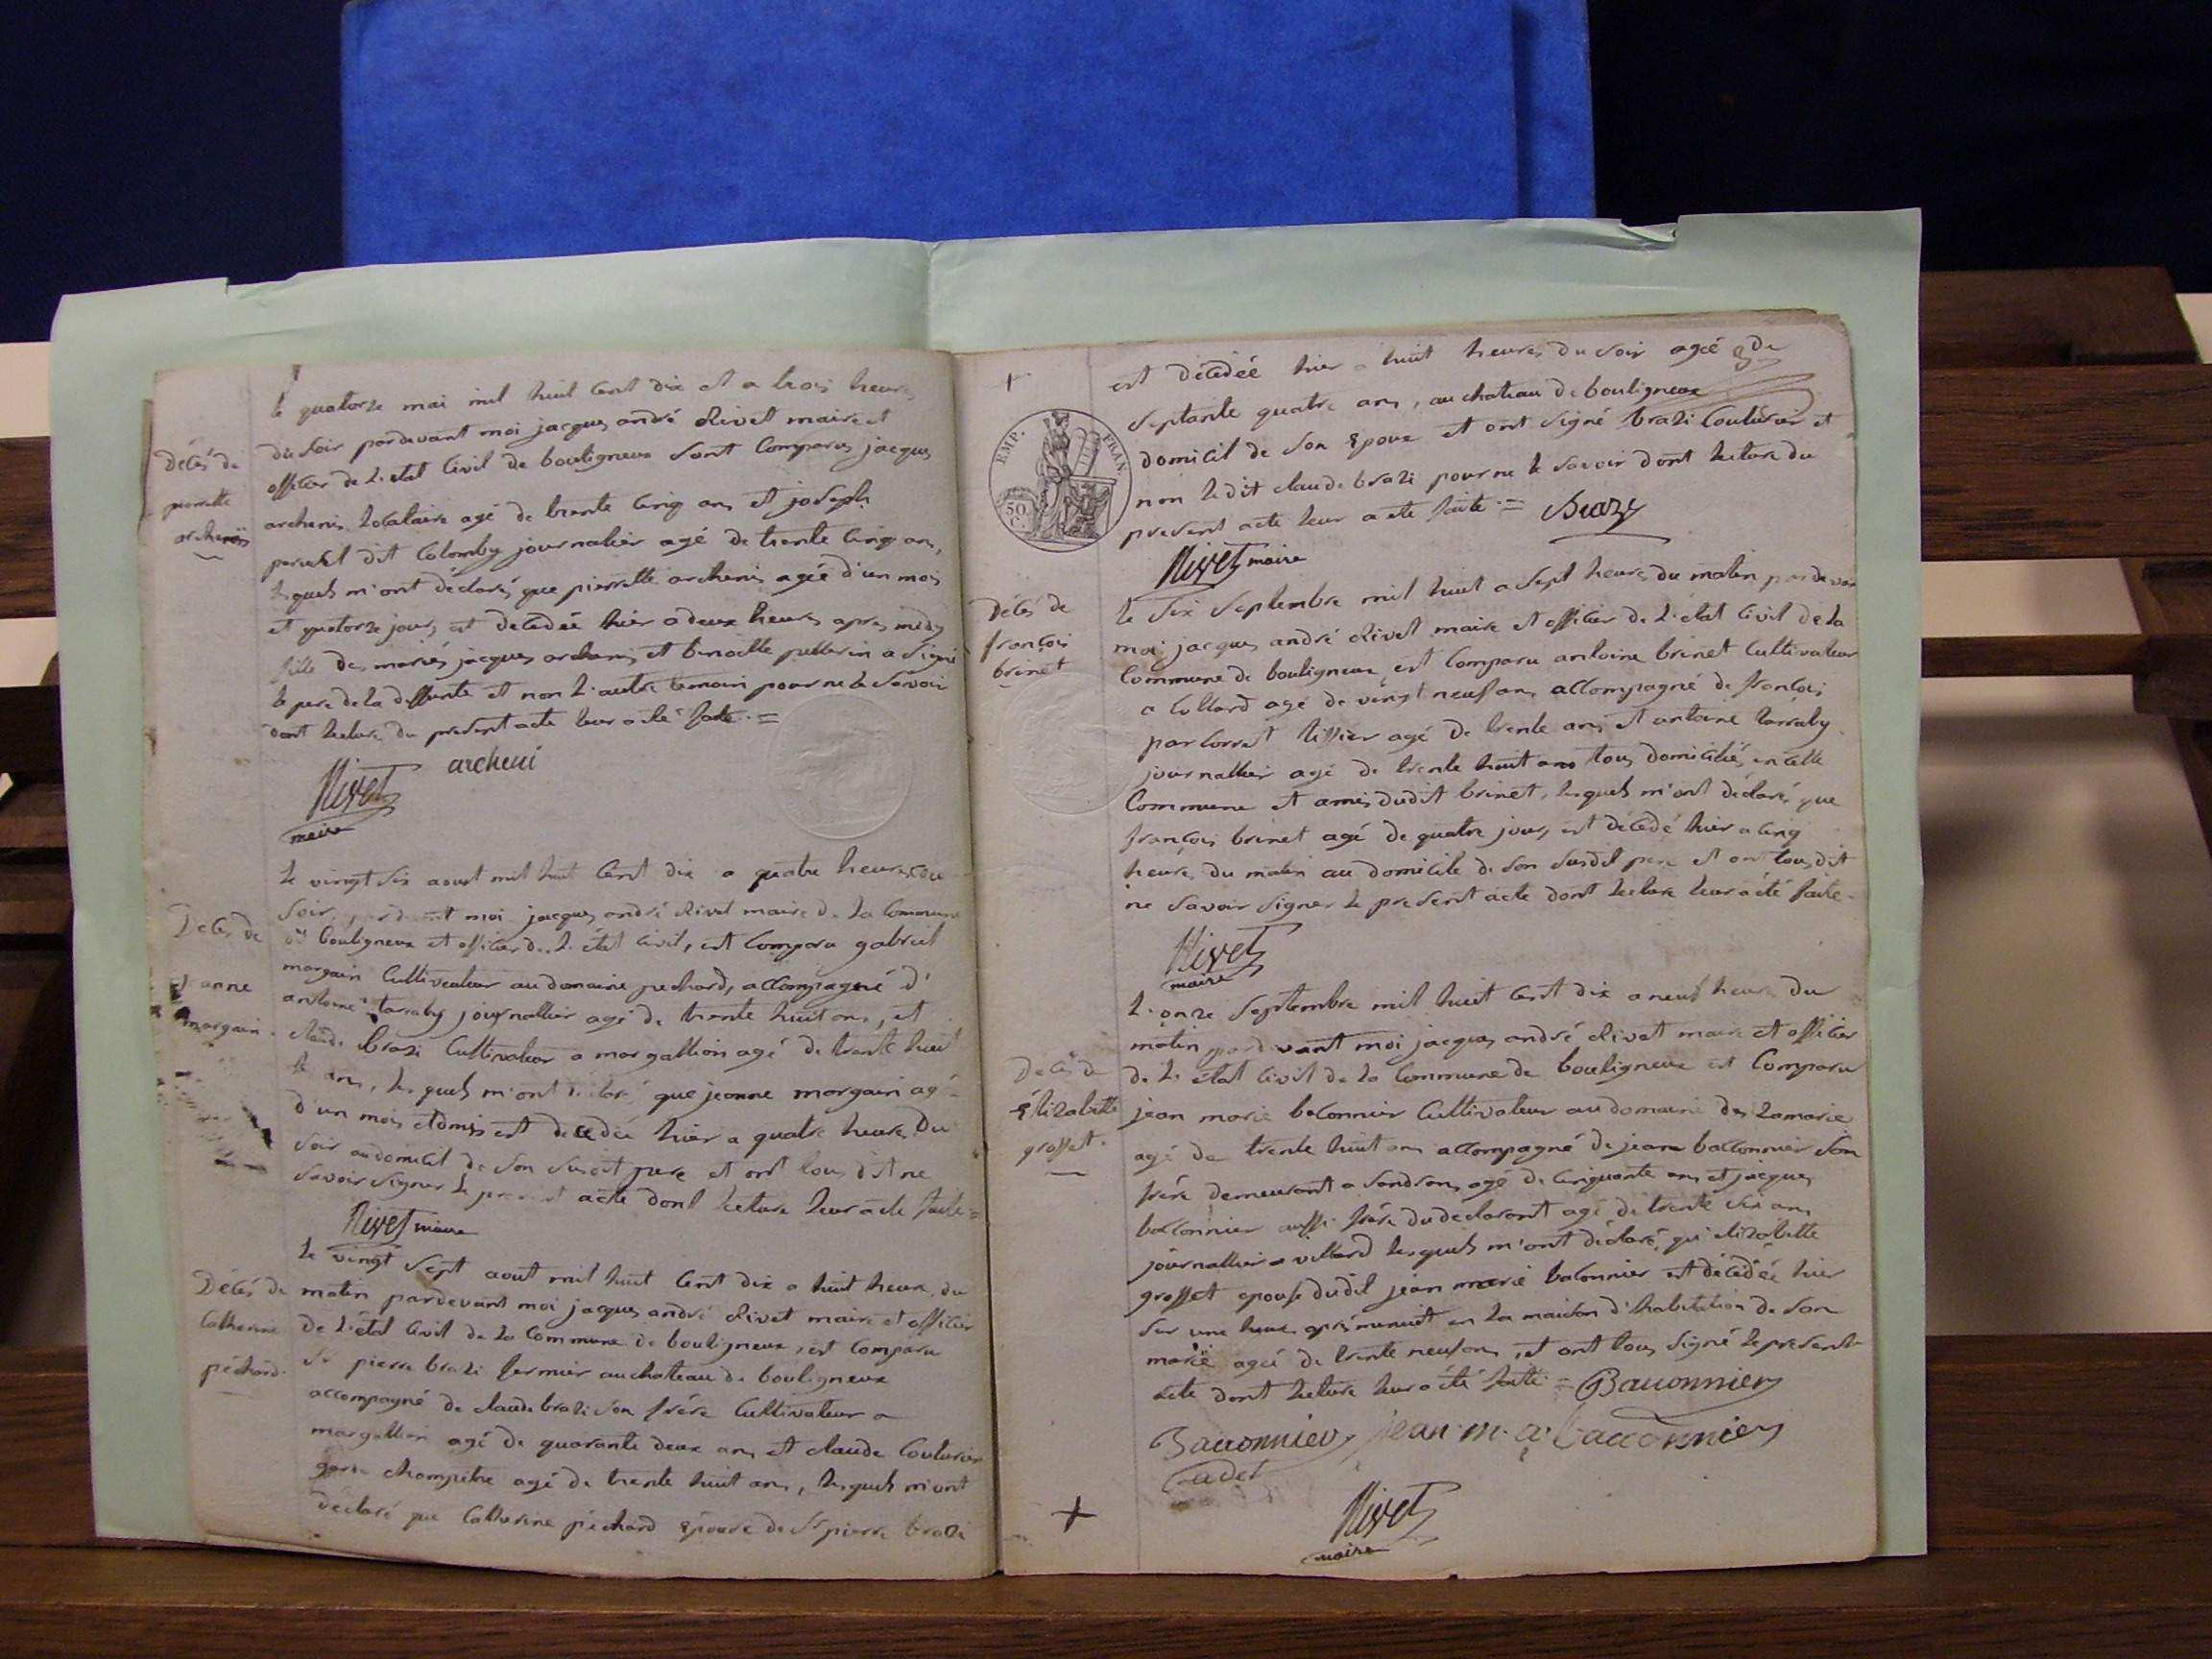 le quatorze mai mil huit cent dix et a trois heures
du soir pardevant moi jacques andré Rivet maire et
Décés de
pierrette
archenis
officier de l'etat civil de bouligneux sont comparus jacques
archenis locataire agé de trente cinq ans et joseph
dit Colomby journalier agé de trente cinq ans,
lesquels m'ont déclarés que pierrette archenis agée d'un mois
et quatorze jours est decedée hier a deux heures apres midy
fille des mariés jacques archenis et benoitte pellerin a signé
le pere de la deffunte et non l'autre temoin pour ne le savoir
dont lecture du present acte leur a été faite =
Rivet archeni
maire
le vingt six aoust mil huit cent dix a quatre heures du
soir, pardevant moi jacques andré Rivet maire de la commune
Décés de
jeanne
morgain
de bouligneux et officier de l'état civil, est comparu gabriel
morgain cultivateur au domaine pechard, accompagné d'
antoine tarraby journallier agé de trente huit ans, et
claude brazi cultivateur a morgallion agé de trente huit
ans, lesquels m'ont déclaré que jeanne morgain agée
d'un mois et demis est decedée hier a quatre heures du
soir au domicil de son susdit pere et ont tous dit ne
savoir signer le present acte dont lecture leur a été faite =
Rivet maire
le vingt sept aout mil huit cent dix a huit heures du
Décés de
Catherine
péchard
matin pardevant moi jacques andré Rivet maire et officier
de l'état civil de la commune de bouligneux, est comparu
Sr pierre brazi fermier au chateau de bouligneux
accompagné de claude brazi son frére cultivateur a
morgallion agé de quarante deux ans et claude Couturier
garde champetre agé de trente huit ans, lesquels m'ont
déclaré que Catherine péchard épouse de Sr pierre brazi
est décedée hier a huit heures du soir agée de
septante quatre ans, au chateau de bouligneux
EMP. FRAN.
50 C.
domicil de son époux et ont signé brazi Couturier et
non ledit claude brazi pour ne le savoir dont lecture du
present acte leur a été faite = Brazy
Rivet maire
Décés de
françois
brinet
le six septembre mil huit a sept heures du matin pardevant
moi jacques andré Rivet maire et officier de l'état civil de la
commune de bouligneux est comparu antoine brinet cultivateur
a Collard agé de vingt neuf ans accompagné de francois
tissier agé de trente ans et antoine tarraby
journallier agé de trente huit ans tous domiciliés en cette
commune et amis dudit brinet, lesquels m'ont déclarés que
francois brinet agé de quatre jours est décedé hier a cinq
heures du matin au domicile de son susdit pere et ont tous dit
ne savoir signer le present acte dont lecture leur a été faite =
Rivet
maire
l'onze septembre mil huit cent dix a neuf heures du
matin pardevant moi jacques andré Rivet maire et officier
Décés de
élizabette
grosset
de l'état civil de la commune de bouligneux est comparu
jean marie baconnier cultivateur au domaine des lamarie
agé de trente huit ans accompagné de jean baconnier son
frére demeurant a sandrans agé de cinquante ans et jacques
baconnier aussi frére du declarant agé de trente six ans
journallier a villard lesquels m'ont déclaré, qu'elizabette
grosset epouse dudit jean marie baconnier est décedée hier
sur une heure aprés minuit en la maison d'habitation de son
marié agée de trente neuf ans, et ont tous signé le present
acte dont lecture leur a été faite = Bauonnier
Bauonnier jean m. a. bauonnier
cadet
Rivet
maire